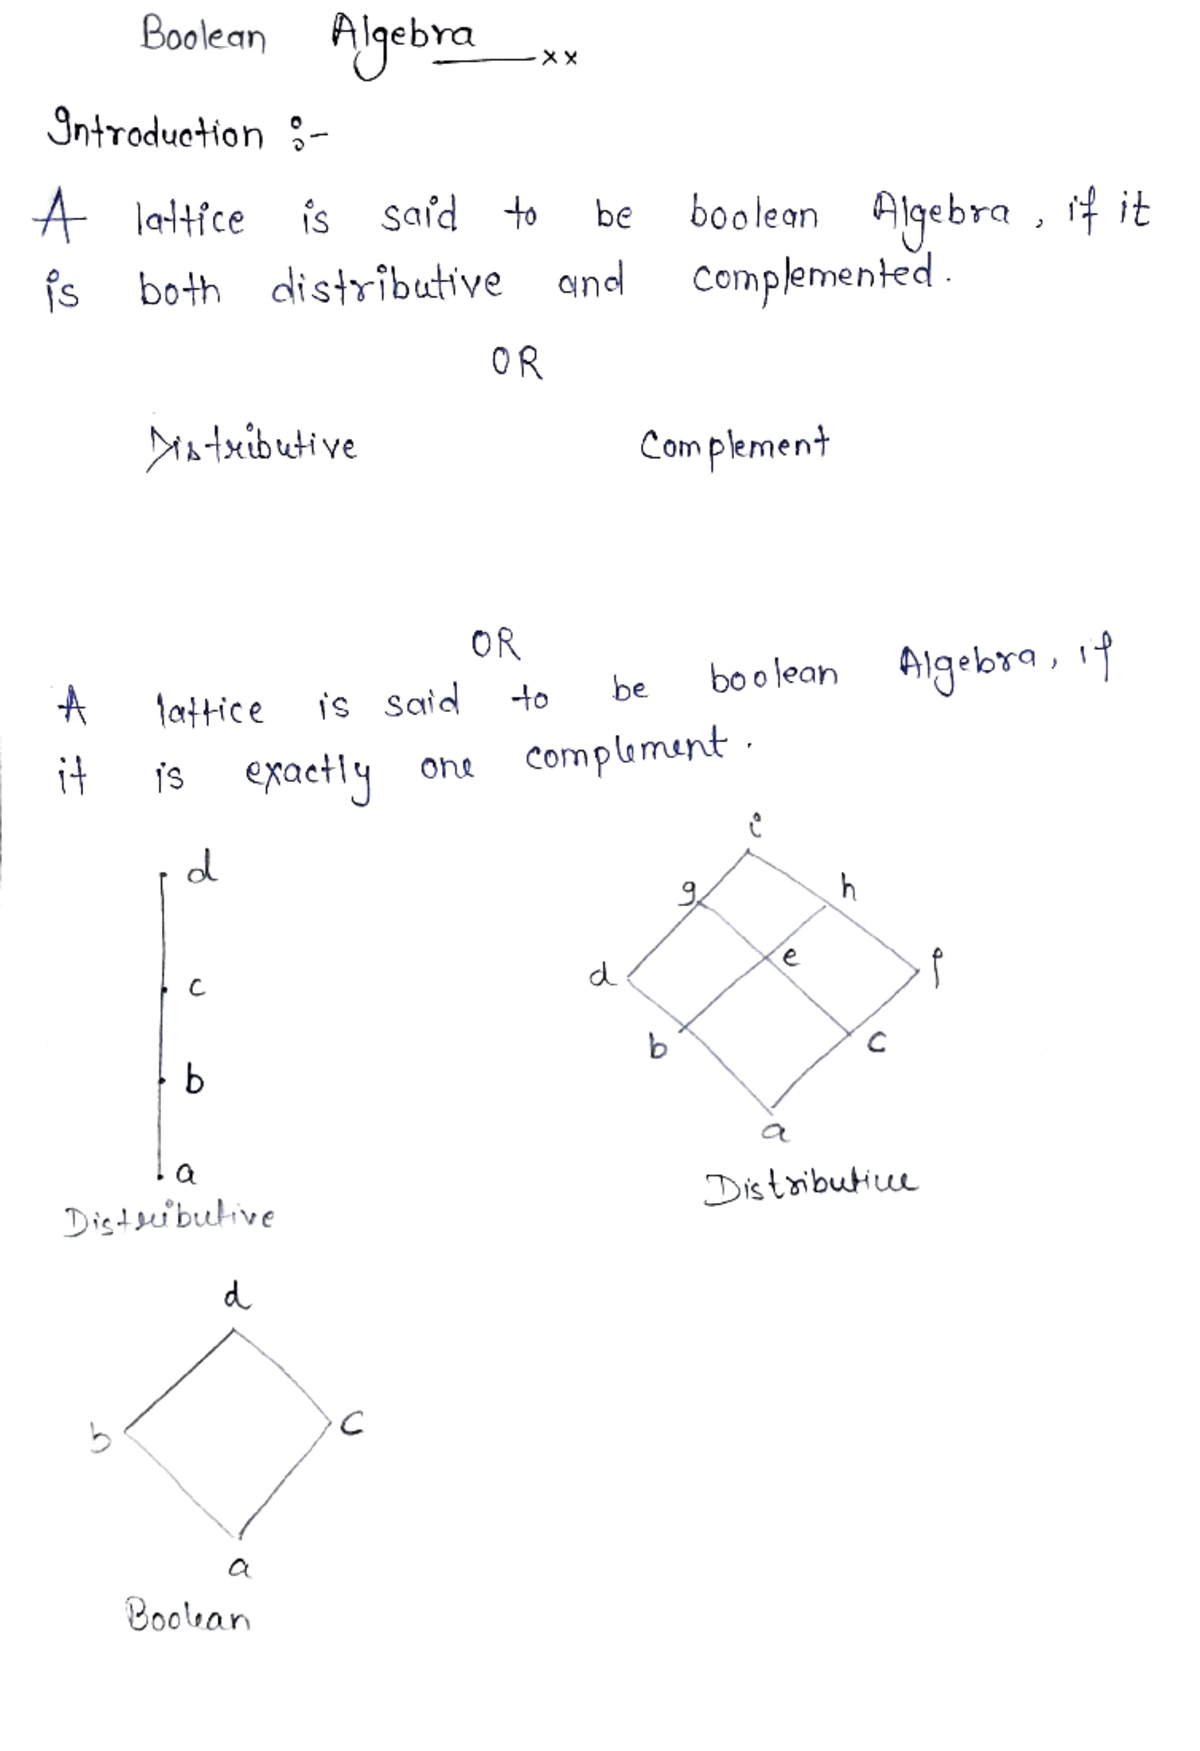 Boolean Algebra xx
Introduction :-
A lattice is said to be boolean Algebra, if it
is both distributive and complemented.
OR
Distributive Complement
OR
A lattice is said to be boolean Algebra, if
it is exactly one complement.
d
c
b
a
Distributive
i
g h
d e f
b c
a
Distributive
d
b c
a
Boolean